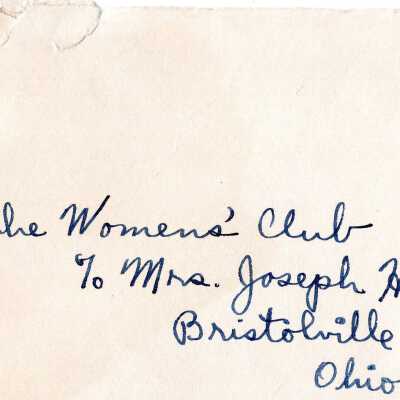 he Womens' Club
% Mrs. Joseph H
Bristolville
Ohio